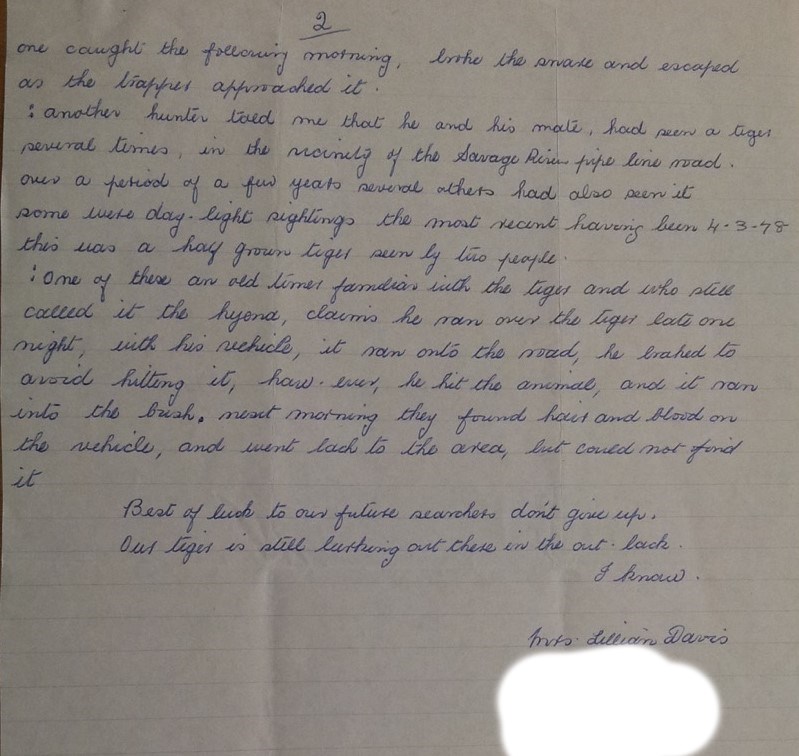 2
one caught the following morning, broke the snare and escaped
as the trapper approached it.
: another hunter toled me that he and his mate, had seen a tiger
several times, in the vicinity of the Savage River pipe line road.
over a period of a few years several others had also seen it
some were day-light sightings the most recent having been 4-3-78
this was a half grown tiger seen by two people.
: One of these an old timer familiar with the tiger and who still
called it the hyena, claims he ran over the tiger late one
night, with his vehicle, it ran onto the road, he braked to
avoid hitting it, how-ever, he hit the animal, and it ran
into the bush. next morning they found hair and blood on
the vehicle, and went back to the area, but could not find
it
Best of luck to our future searchers don't give up.
Our tiger is still lurking out there in the out-back.
I know.
Mrs. Lillian Davis